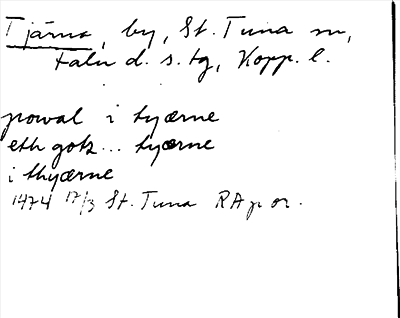 Tjärna, by, St. Tuna sn,
Falu d. s. tg, Kopp. l.
powal i tyærne
eth gotz... tyærne
i thyærne
1474 17/3 St. Tuna RAp or.